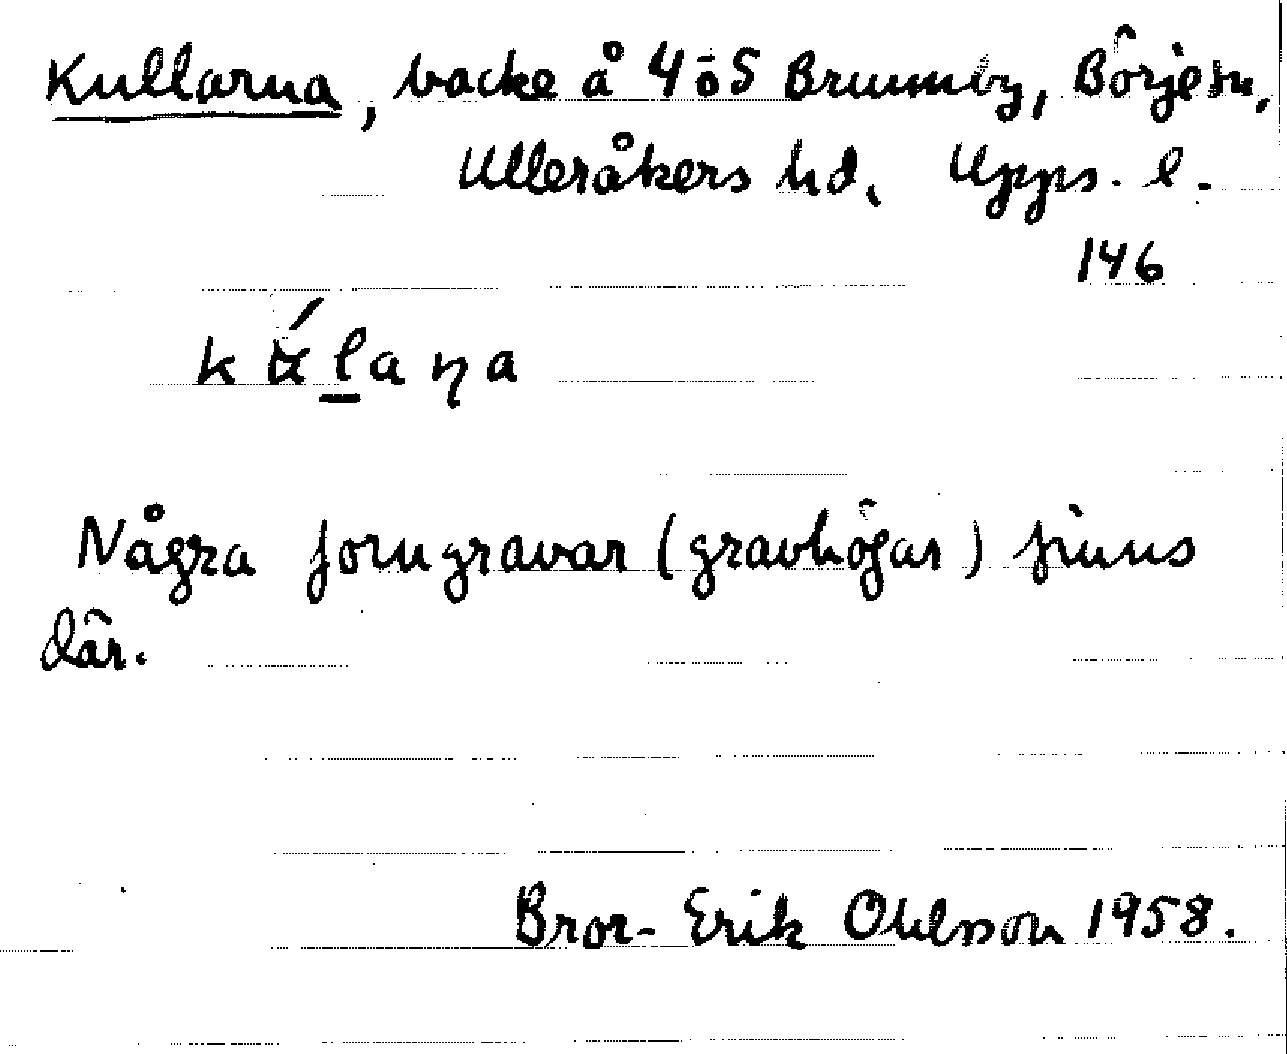 Kullarna, backe å 4 ö S Brunnby, Börje sn,
Ulleråkers hd, Upps. l.
146
Några forngravar (gravhögar) finns
där.
Bror-Erik Ohlsson 1958.